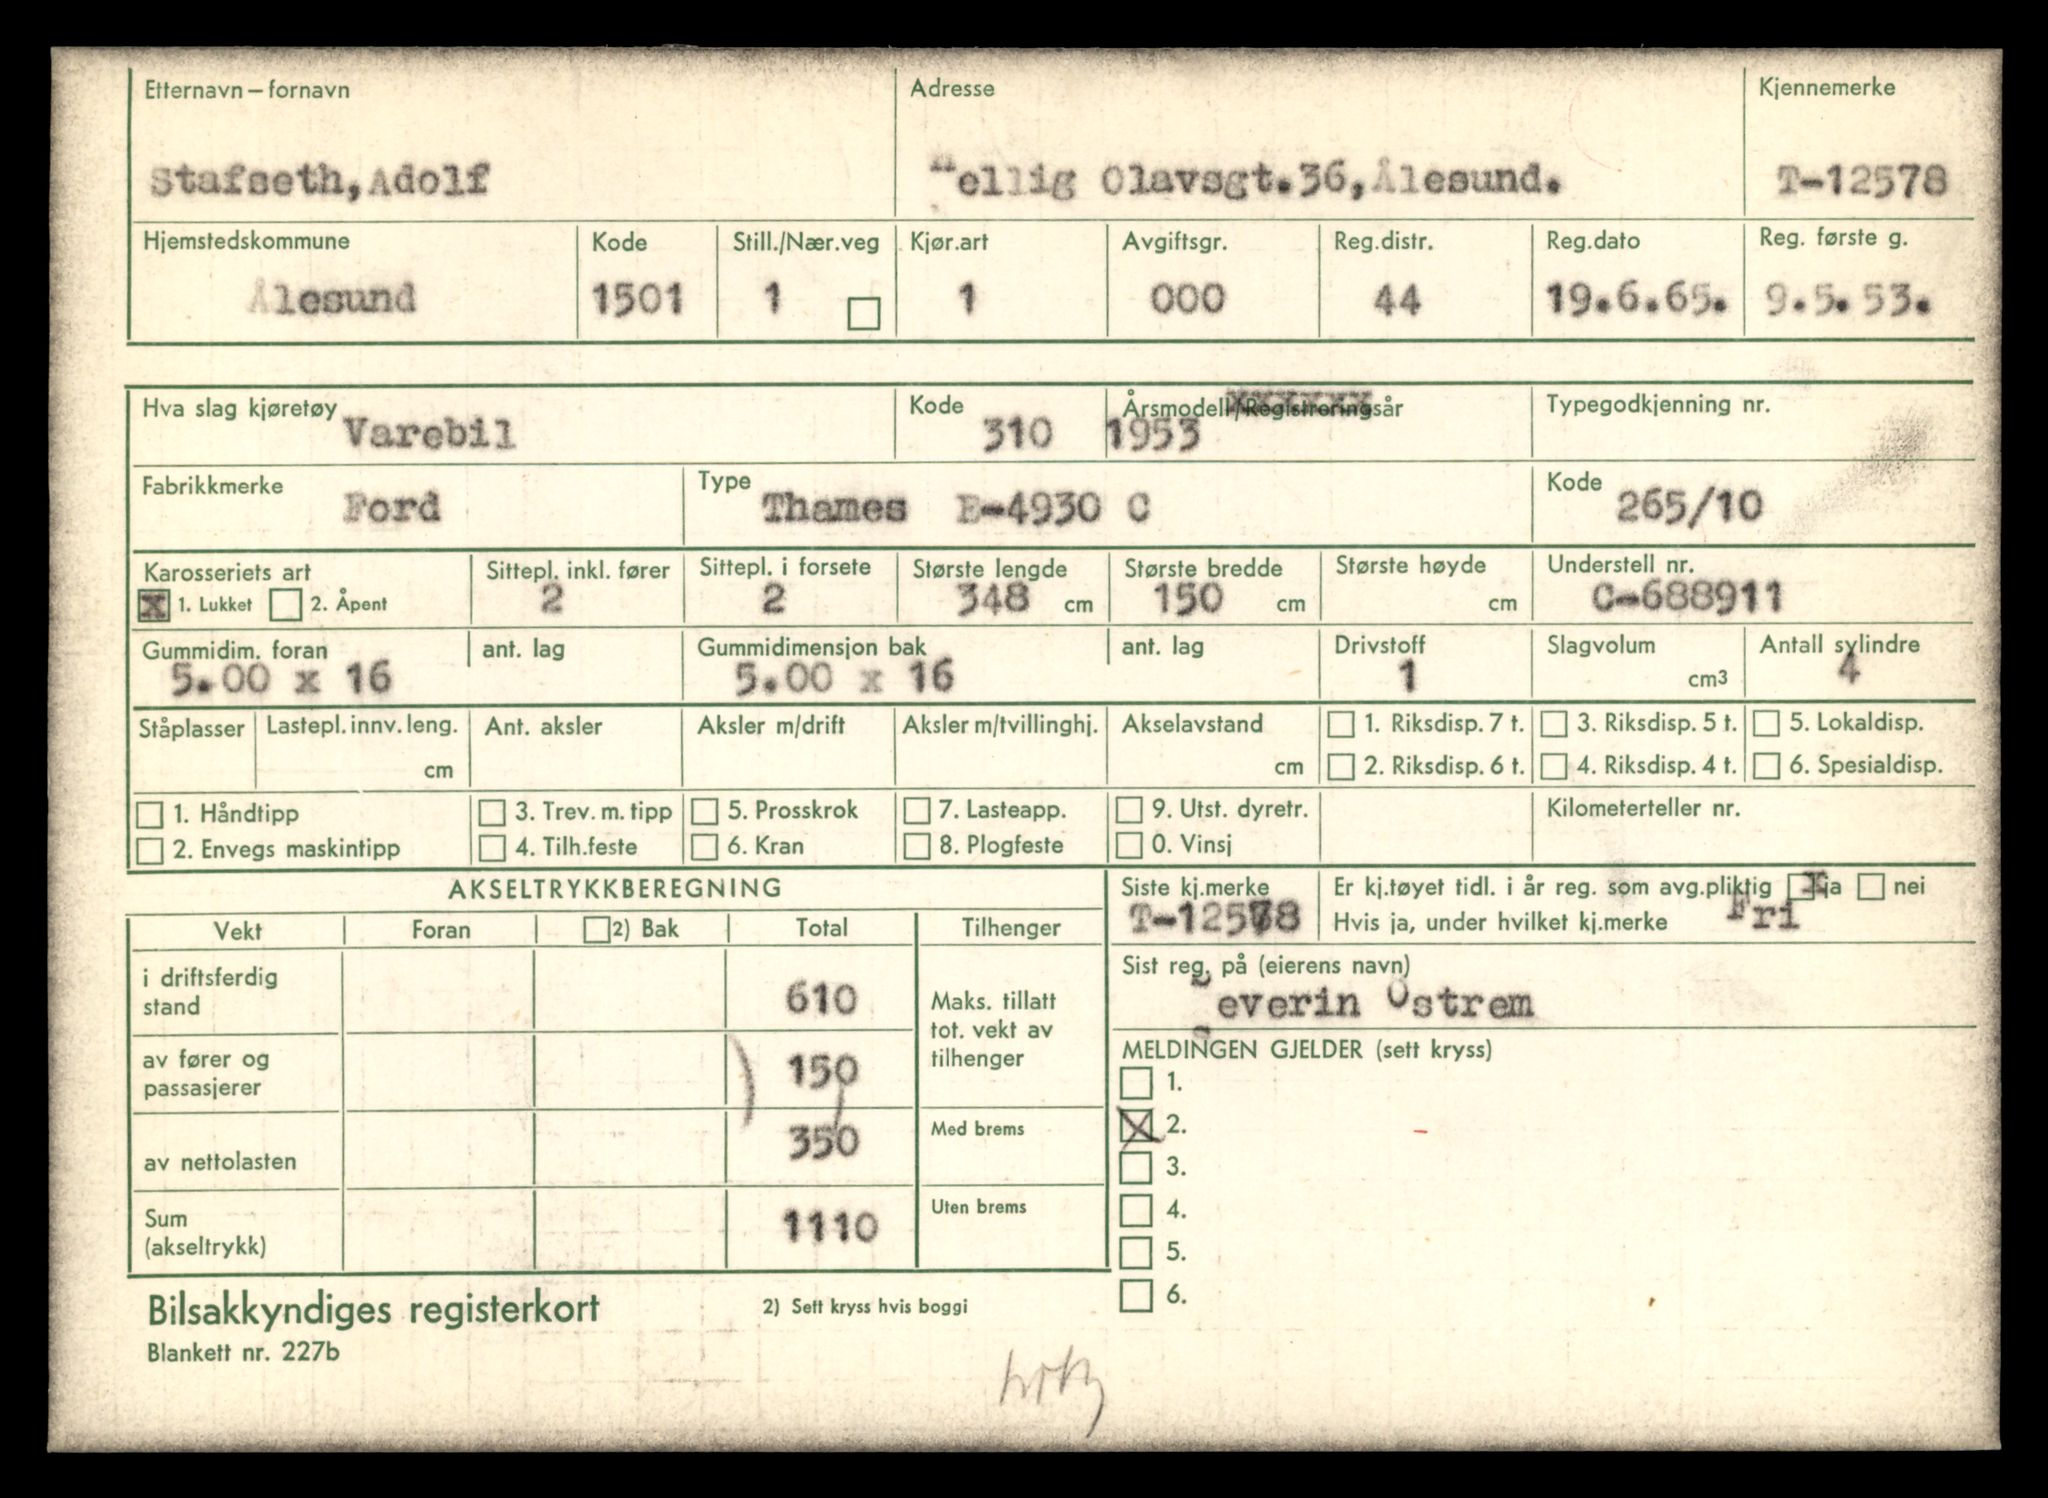 Etternavn – fornavn Adresse Kjennemerke
Stafseth, Adolf Hellig Olavsgt. 36, Ålesund. T-12578
Hjemstedskommune Kode Still./Nær.veg Kjør.art Avgiftsgr. Reg.distr. Reg.dato Reg. første g.
Ålesund 1501 1 1 000 44 19.6.65. 9.5.53.
Hva slag kjøretøy Kode Årsmodell/Registreringsår Typegodkjenning nr.
Varebil 310 1953
Fabrikkmerke Type Kode
Ford Thames E-4930 C 265/10
Karosseriets art Sittepl. inkl. fører Sittepl. i forsete Største lengde Største bredde Største høyde Understell nr.
X 1. Lukket 2. Åpent 2 2 348 cm 150 cm cm C-688911
Gummidim. foran ant. lag Gummidimensjon bak ant. lag Drivstoff Slagvolum Antall sylindre
5.00 x 16 5.00 x 16 1 cm3 4
Ståplasser Lastepl. innv. leng. Ant. aksler Aksler m/drift Aksler m/tvillinghj. Akselavstand 1. Riksdisp. 7 t. 3. Riksdisp. 5 t. 5. Lokaldisp.
cm cm 2. Riksdisp. 6 t. 4. Riksdisp. 4 t. 6. Spesialdisp.
1. Håndtipp 3. Trev. m. tipp 5. Prosskrok 7. Lasteapp. 9. Utst. dyretr. Kilometerteller nr.
2. Envegs maskintipp 4. Tilh.feste 6. Kran 8. Plogfeste 0. Vinsj
AKSELTRYKKBEREGNING Siste kj.merke Er kj.tøyet tidl. i år reg. som avg.pliktig x ja nei
T-12578 Hvis ja, under hvilket kj.merke Fri
Vekt Foran 2) Bak Total Tilhenger
Sist reg. på (eierens navn)
Severin Østrem
i driftsferdig
stand 610
Maks. tillatt
tot. vekt av
tilhenger
av fører og
passasjerer 150
MELDINGEN GJELDER (sett kryss)
1.
X 2.
3.
4.
5.
6.
av nettolasten 350 Med brems
Sum
(akseltrykk) 1110 Uten brems
Bilsakkyndiges registerkort 2) Sett kryss hvis boggi
Blankett nr. 227b